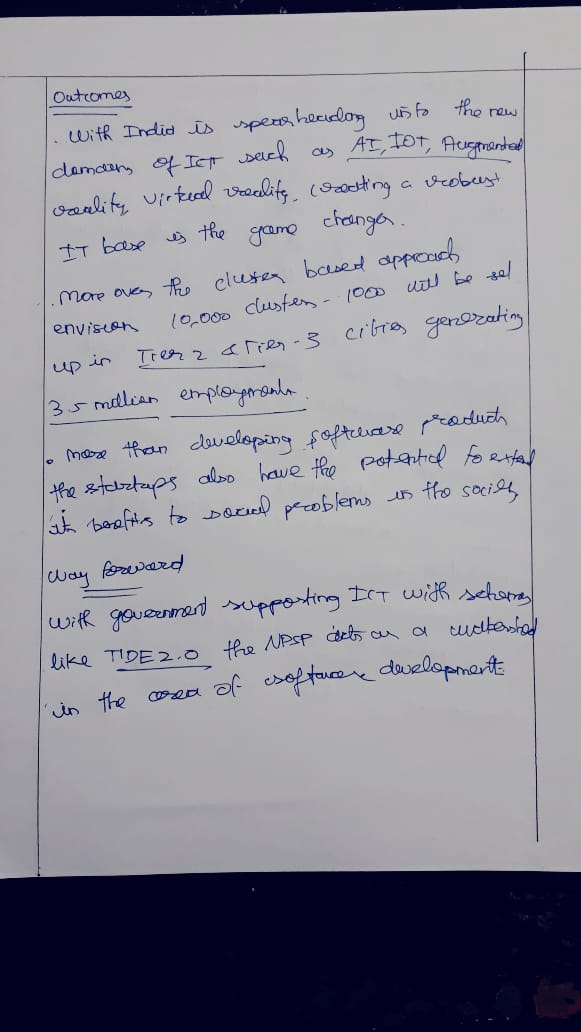 Outcomes
. With India is spearheading into the new
domains of ICT such as AI, IOT, Augmented
reality, virtual reality, creating a robust
IT base is the game changer.
. More over the cluster based approach
envision 10,000 clusters - 1000 will be set
up in Tier 2 & Tier-3 cities generating
3.5 million employments.
• more than developing software products
the startups also have the potential to extend
it benefits to social problems in the society
way forward
with government supporting ICT with schemes
like TIDE 2.0 the NPSP acts as a
in the area of software development